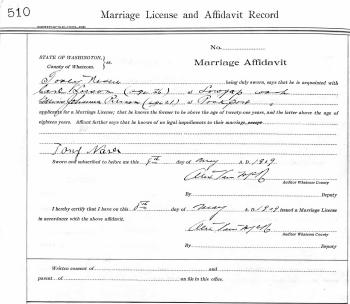 510
Marriage License and Affidavit Record
No.
STATE OF WASHINGTON, } ss.
County of Whatcom.
Marriage Affidavit
being duly sworn, says that he is acquainted with
Carl (age 26) of wash
(age 21) of Rockport
applicants for a Marriage License; that he knows the former to be above the age of twenty-one years, and the latter above the age of
eighteen years. Affiant further says that he knows of no legal impediments to their marriage, except
Tony
Sworn and subscribed to before me this 8th day of May A. D. 1909
Auditor Whatcom County
By Deputy
I hereby certify that I have on this 8th day of May A. D. 1909 issued a Marriage License
in accordance with the above affidavit.
Auditor Whatcom County
By Deputy
Written consent of and
parent of is on file in this office.